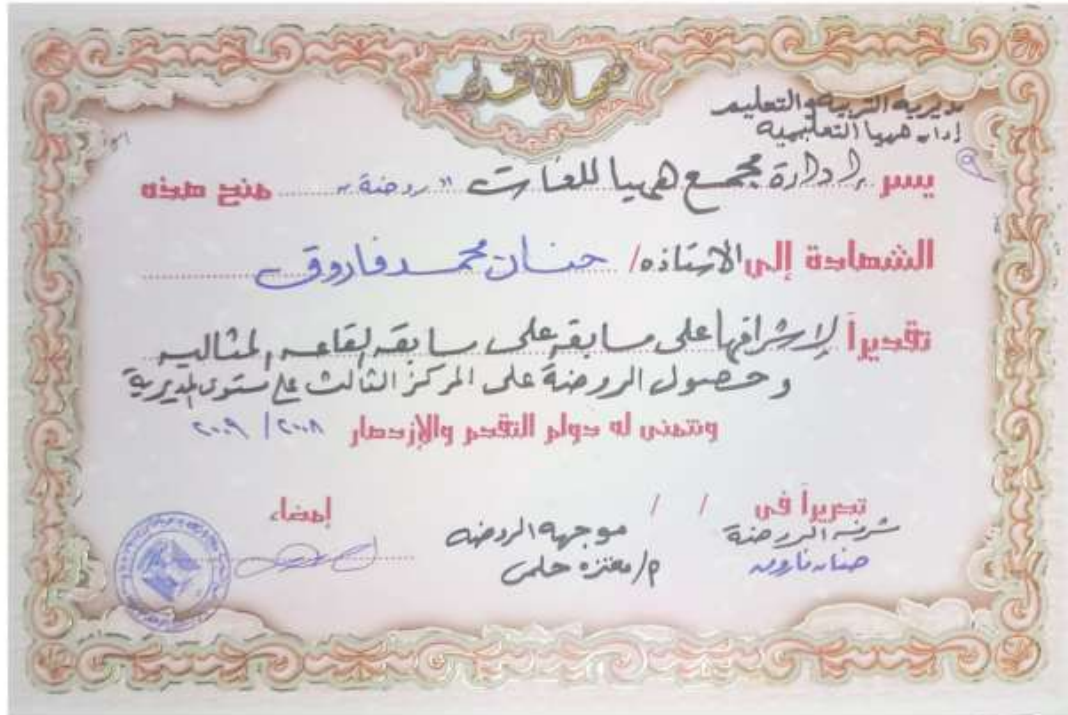 شهادة تقدير
مديريه التربيه والتعليم
إداره ههيا التعليميه
يسر إدارة مجمع ههيا للغات "روضة" منح هذه
الشهادة إلى الاستاذه/ حنان محمد فاروق
تقديراً لإشرافها على مسابقة على سابقه القاعه المثاليه
وحصول الروضة على المركز الثالث على مستوى المديرية
ونتمنى له دوام التقدم والإزدهار ٢٠٠٨/ ٢٠٠٩
تحريراً فى / / إمضاء
مشرفه الروضة موجهه الروضه
حنان فاروق م/ حلمى